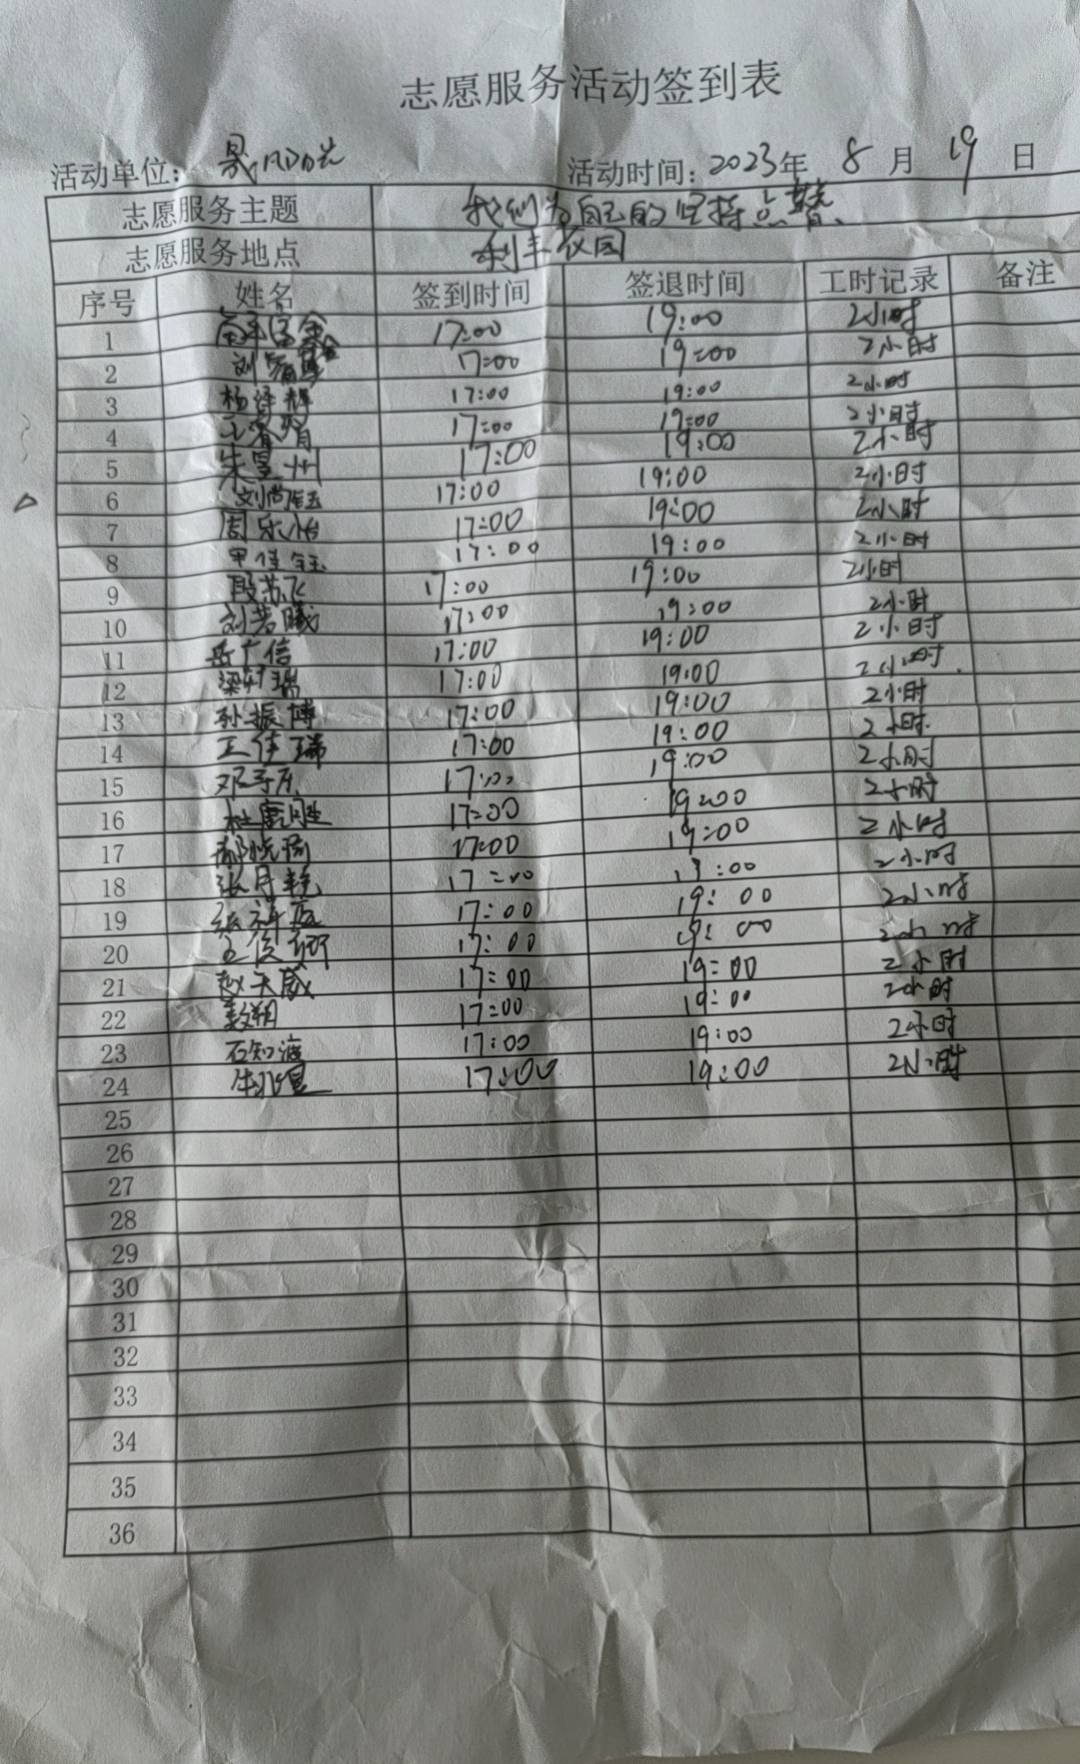 志愿服务活动签到表
活动单位: 活动时间: 2023年 8 月 19 日
志愿服务主题 我们为自己的坚持点赞
志愿服务地点 利丰农园
序号 姓名 签到时间 签退时间 工时记录 备注
1 17:00 19:00 2小时
2 刘 17:00 19:00 2小时
3 杨 辉 17:00 19:00 2小时
4 17:00 19:00 2小时
5 朱昱州 17:00 19:00 2小时
6 刘尚 17:00 19:00 2小时
7 周乐怡 17:00 19:00 2小时
8 申佳钰 17:00 19:00 2小时
9 段苏飞 17:00 19:00 2小时
10 刘若曦 17:00 19:00 2小时
11 岳广信 17:00 19:00 2小时
12 梁 瑞 17:00 19:00 2小时
13 孙振博 17:00 19:00 2小时
14 王佳瑞 17:00 19:00 2小时
15 邓子 17:00 19:00 2小时
16 杜 胜 17:00 19:00 2小时
17 郝悦 17:00 19:00 2小时
18 张月 17:00 19:00 2小时
19 张 17:00 19:00 2小时
20 17:00 19:00 2小时
21 赵天威 17:00 19:00 2小时
22 17:00 19:00 2小时
23 石知渔 17:00 19:00 2小时
24 17:00 19:00 2小时
25
26
27
28
29
30
31
32
33
34
35
36